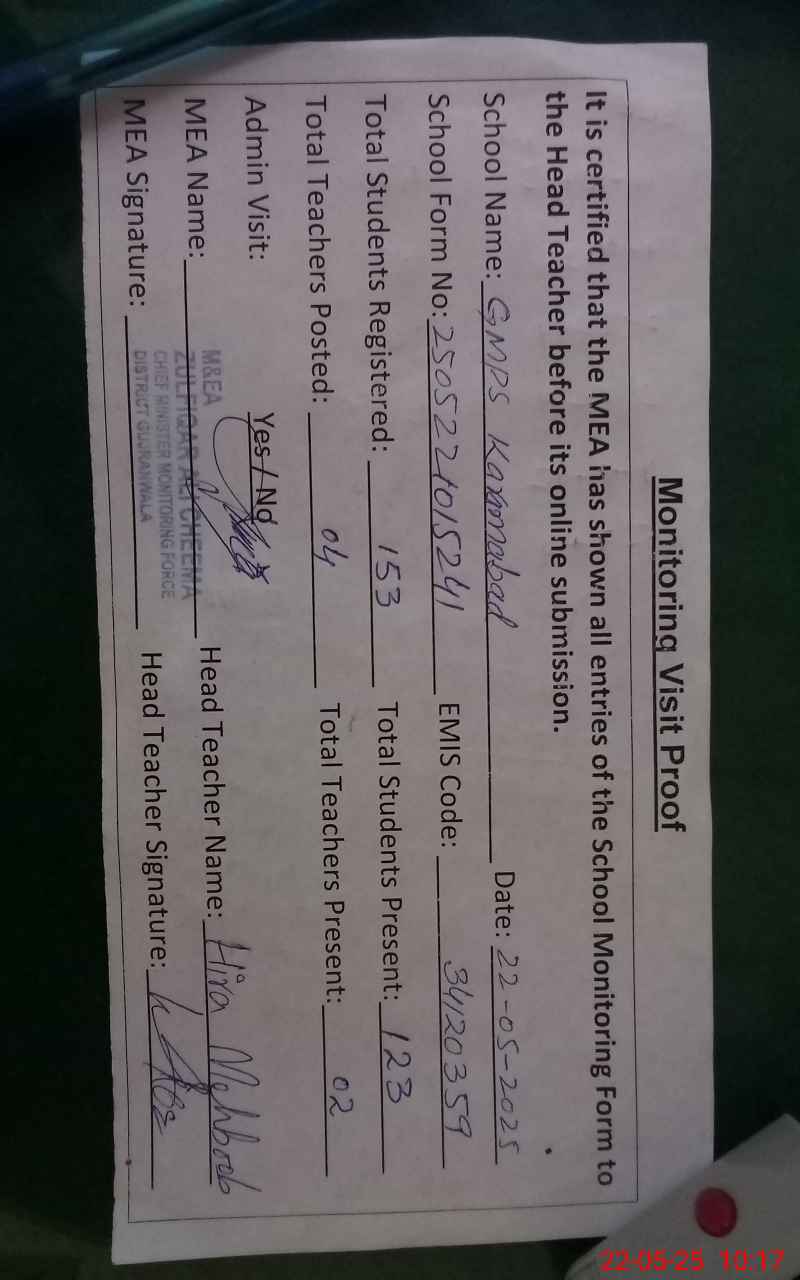 Monitoring Visit Proof
It is certified that the MEA has shown all entries of the School Monitoring Form to
the Head Teacher before its online submission.
School Name: GMPS Karamabad Date: 22-05-2025
School Form No: 2505221015241 EMIS Code: 34120359
Total Students Registered: 153 Total Students Present: 123
Total Teachers Posted: 04 Total Teachers Present: 02
Admin Visit: Yes / No
MEA Name: Head Teacher Name: Hira Mehboob
MEA Signature: Head Teacher Signature:
M&EA
ZULFIQAR ALI CHEEMA
CHIEF MINISTER MONITORING FORCE
DISTRICT GUJRANWALA
22-05-25 10:17